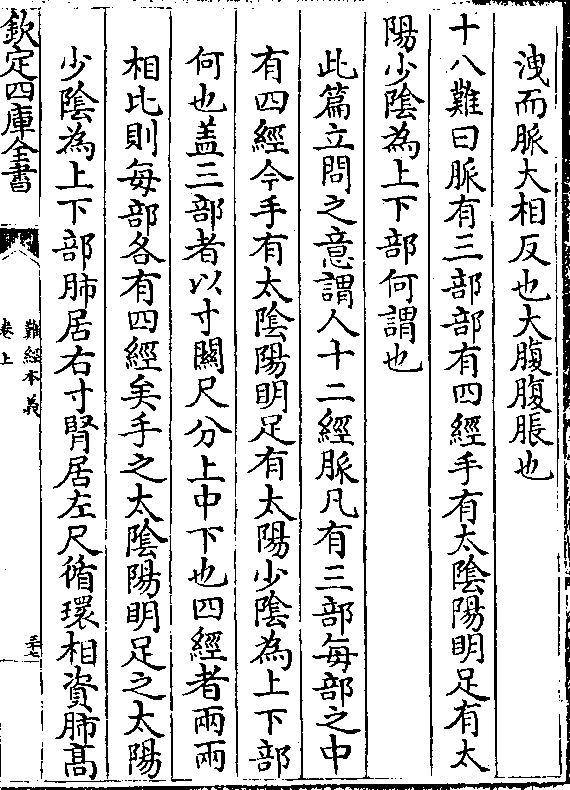 洩而脈大相反也大腹腹脹也
十八難曰脈有三部部有四經手有太陰陽明足有太
陽少陰為上下部何謂也
此篇立問之意謂人十二經脈凡有三部每部之中
有四經今手有太陰陽明足有太陽少陰為上下部
何也盖三部者以寸關尺分上中下也四經者兩兩
相比則每部各有四經矣手之太陰陽明足之太陽
少陰為上下部肺居右寸腎居左尺循環相資肺髙
欽定四庫全書
難經本義
卷上